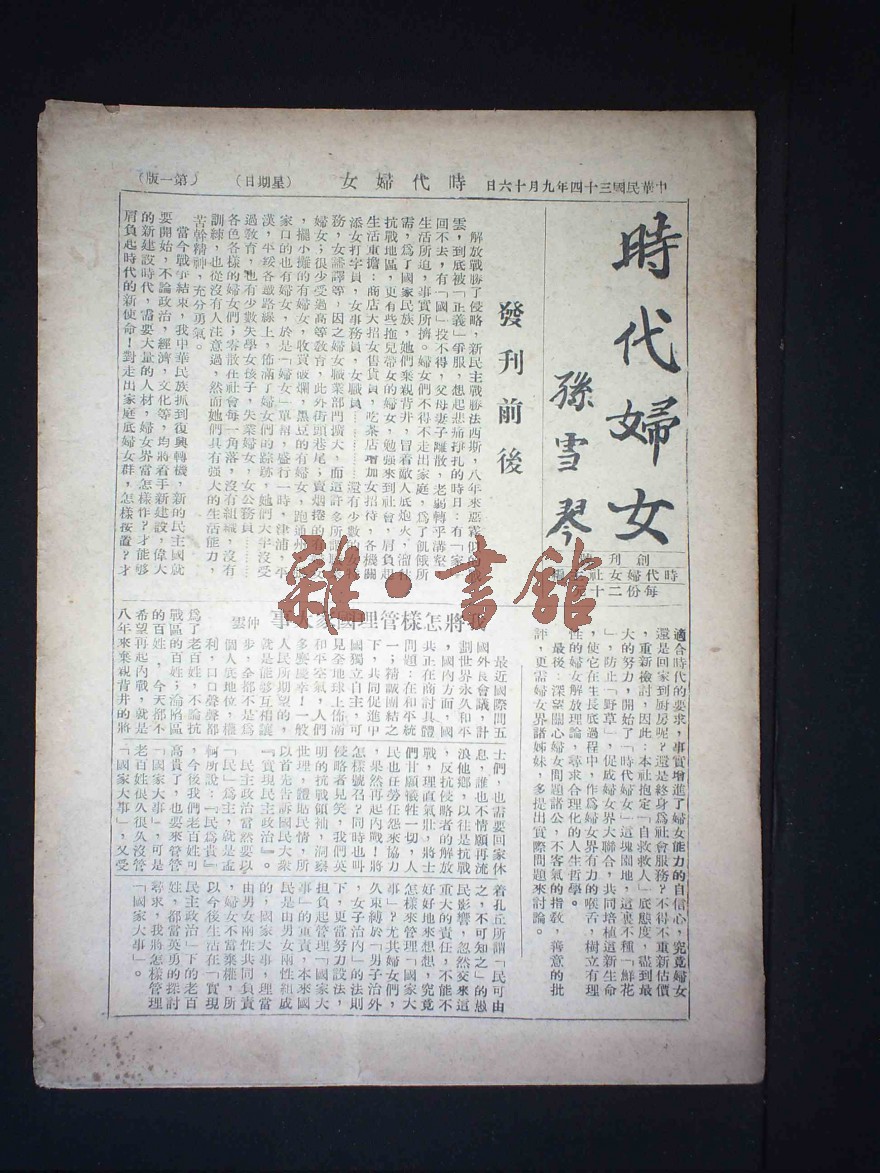 中華民國三十四年九月十六日 時代婦女 (星期日) (第一版)
時代婦女
孫雪琴
創刊
時代婦女社
每份二十
發刊前後
解放戰勝了侵略，新民主戰勝法西斯，八年來惡霧
雲，到底被「正義」爭服，想起悲痛掙扎的時日：有「家」
回不去，有「國」投不得，父母妻子離散，老弱轉乎溝壑
生活所迫，事實所擠。婦女們不得不走出家庭，爲了飢餓所
需，爲了國家民族，她們棄親背井，冒着敵人底炮火，溜
抗戰地區，更有些拖兒帶女的婦女，勉强來到社會，肩負起
生活重擔：商店大招女售貨員，吃茶店增加女招待，各機關
添女打字員，女事務員，女職員………還有少數的女
務，女謙譯等，因之婦女職業部門擴大，而這許多所謂
婦女；很少受過高等敎育，此外街頭巷尾；賣烟捲的有
，擺小攤的有婦女，收買破爛，黑豆的有婦女，跑通州
家口的也有婦女，於是「婦女」單幫，盛行一時，津浦，平
漢，平綏各鐵路線上，佈滿了婦女們的踪跡，她們大半沒受
過敎育，也有少數失學女孩子，失業婦女，女公務員……
各色各樣的婦女們；零散在社會每一角落，沒有組織，沒有
訓練，也從沒有人注意過，然而她們具有强大的生活能力，
苦幹精神，充分勇氣。
當今戰爭結束，我中華民族抓到復興轉機，新的民主國就
要開始，不論政治，經濟，文化等，均將着手新建設，偉大
的新建設時代，需要大量的人材，婦女界當怎樣作？才能够
肩負起時代的新使命！對走出家庭底婦女群，怎樣按置？才
適合時代的要求，事實增進了婦女能力的自信心，究竟婦女
還是回家到厨房呢？還是終身爲社會服務？不得不重新估價
，重新檢討，因此：本社抱定「自救救人」底態度，盡到最
大的努力，開始了「時代婦女」這塊園地，這裏不種「鮮花
」，防止「野草」，促成婦女界大聯合，共同培植這新生命
，使它在生長底過程中，作爲婦女界有力的喉舌，樹立有理
性的婦女解放理論，尋求合理化的人生哲學。
最後：深望關心婦女問題諸公，不客氣的指敎，善意的批
評，更需婦女界諸姊妹，多提出實際問題來討論。
我將怎樣管理國家大事
仲雲
最近國際間五
國外長會議，計
劃世界永久和平
，國內方面，國
共正在商討具體
問題：在和平統
一；精誠團結之
下，共同促進中
國獨立自主，可
見全地球上佈滿
和平空氣，人們
多麽慶幸！一般
人民所期望的，
就是能够互相讓
步，全都不是爲
個人底地位，權
利，口口聲聲都
爲了老百姓，不論抗
戰區的百姓；淪陷區
的百姓，今天都不
希望再起內戰，就是
八年來棄親背井的將
士們，也需要回家休
息，誰也不情願再流
浪他鄉，以往是抗戰
，反抗侵略者的解放
戰，理直氣壯，將士
們甘願犧牲一切，人
民也任勞任怨來協力
，果然再起內戰！將
怎樣號召？同時也叫
侵略者見笑，我們英
明的抗戰領袖，洞察
世理，體貼民情，所
以首先告訴國民大衆
『實現民主政治』。
民主政治當然要以
「民」爲主，就是孟
軻所說：「民爲貴」
，今後我們老百姓可
高貴了，也要來管管
「國家大事」，可是
老百姓很久很久沒管
「國家大事」，又受
着孔丘所謂「民可由
之，不可知之」的愚
民影響，忽然交來這
重大的責任，不能不
好好地來想想，究竟
怎樣來管理「國家大
事」？尤其婦女們，
久束縛於「男子治外
，女子治內」的法則
下，更當努力設法，
担負起管理「國家大
事」的重責，本來國
民是由男女兩性組成
的，國家大事，理當
由男女兩性共同負責
，婦女不當棄權，所
以今後生活在「實現
民主政治」下的老百
姓，都當英勇的探討
尋求，我將怎樣管理
「國家大事」。
雜·書館